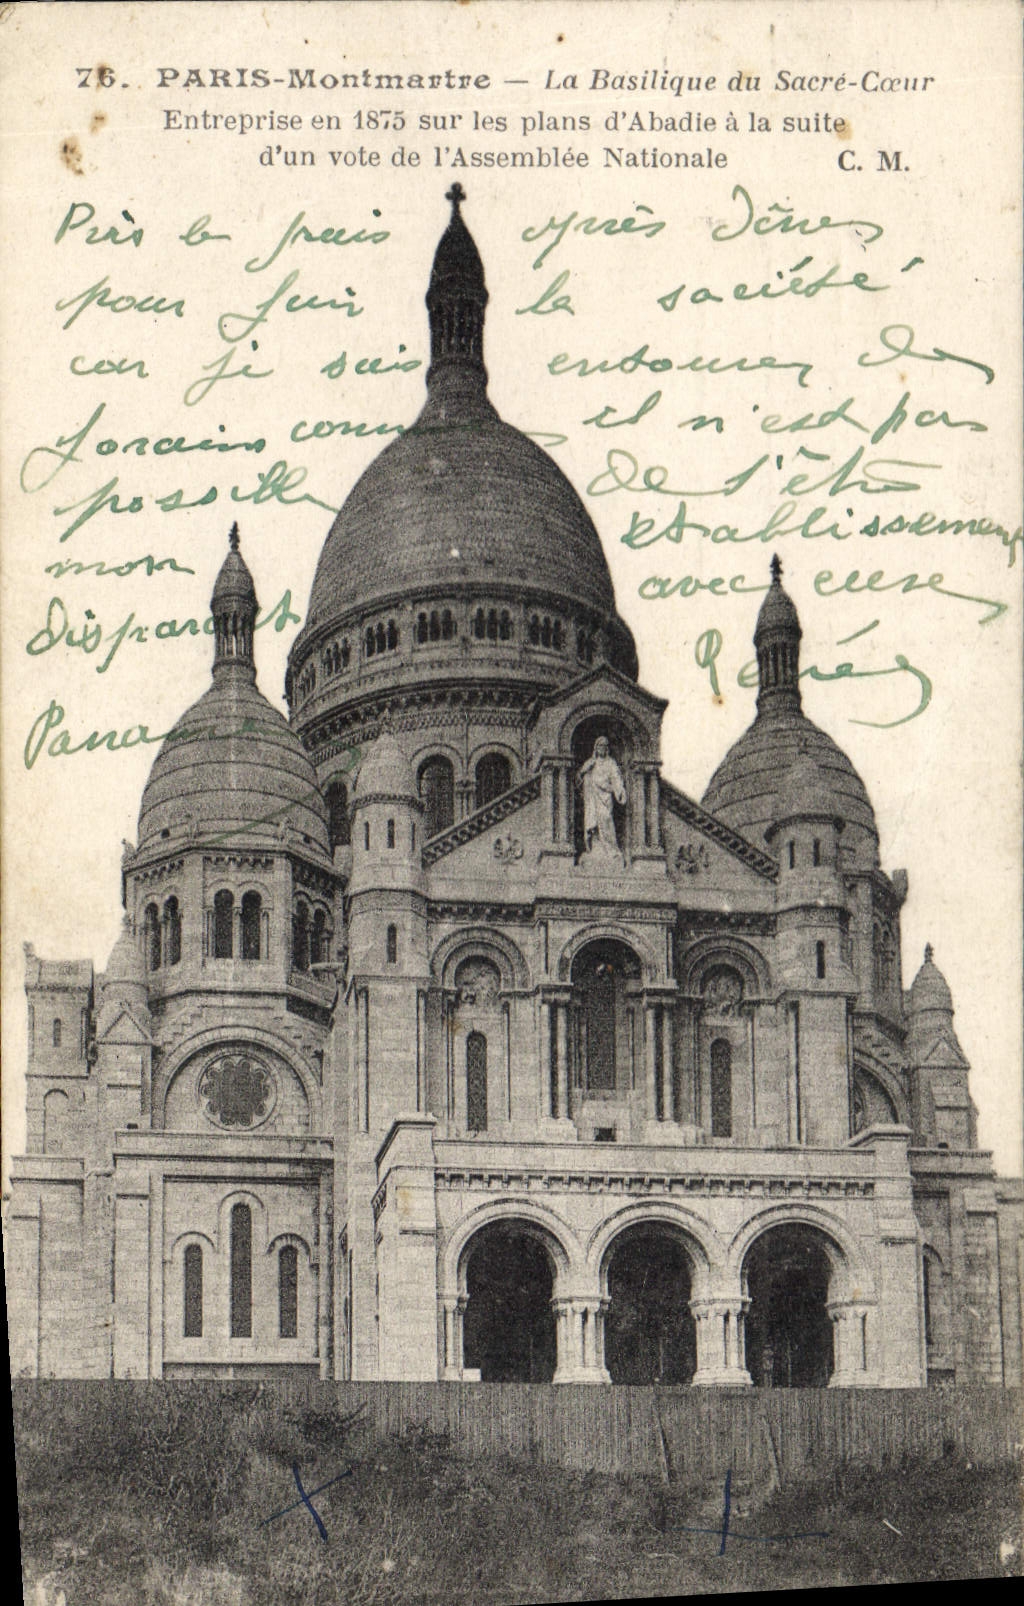 76. PARIS-Montmartre — La Basilique du Sacré-Cœur
Entreprise en 1875 sur les plans d'Abadie à la suite
d'un vote de l'Assemblée Nationale C. M.
le frais après
pour fuir la société
car je suis entourer de
forains comme il n'est pas
possible de l'être
mon établissement
disparait avec
Paname